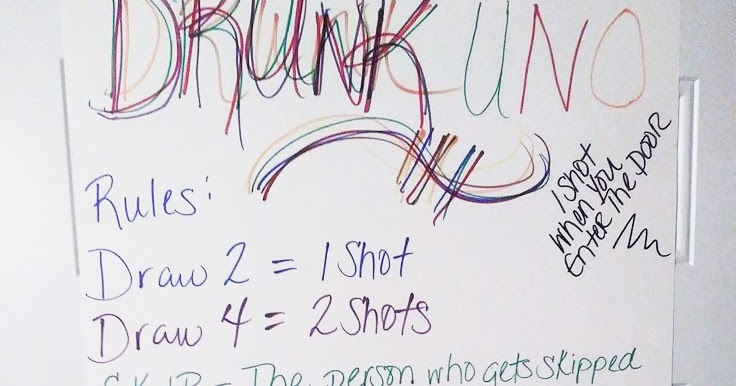 DRUNK UNO
1 Shot
When You
Enter The DOOR
Rules:
Draw 2 = 1 Shot
Draw 4 = 2 Shots
SKIP - The person who gets skipped